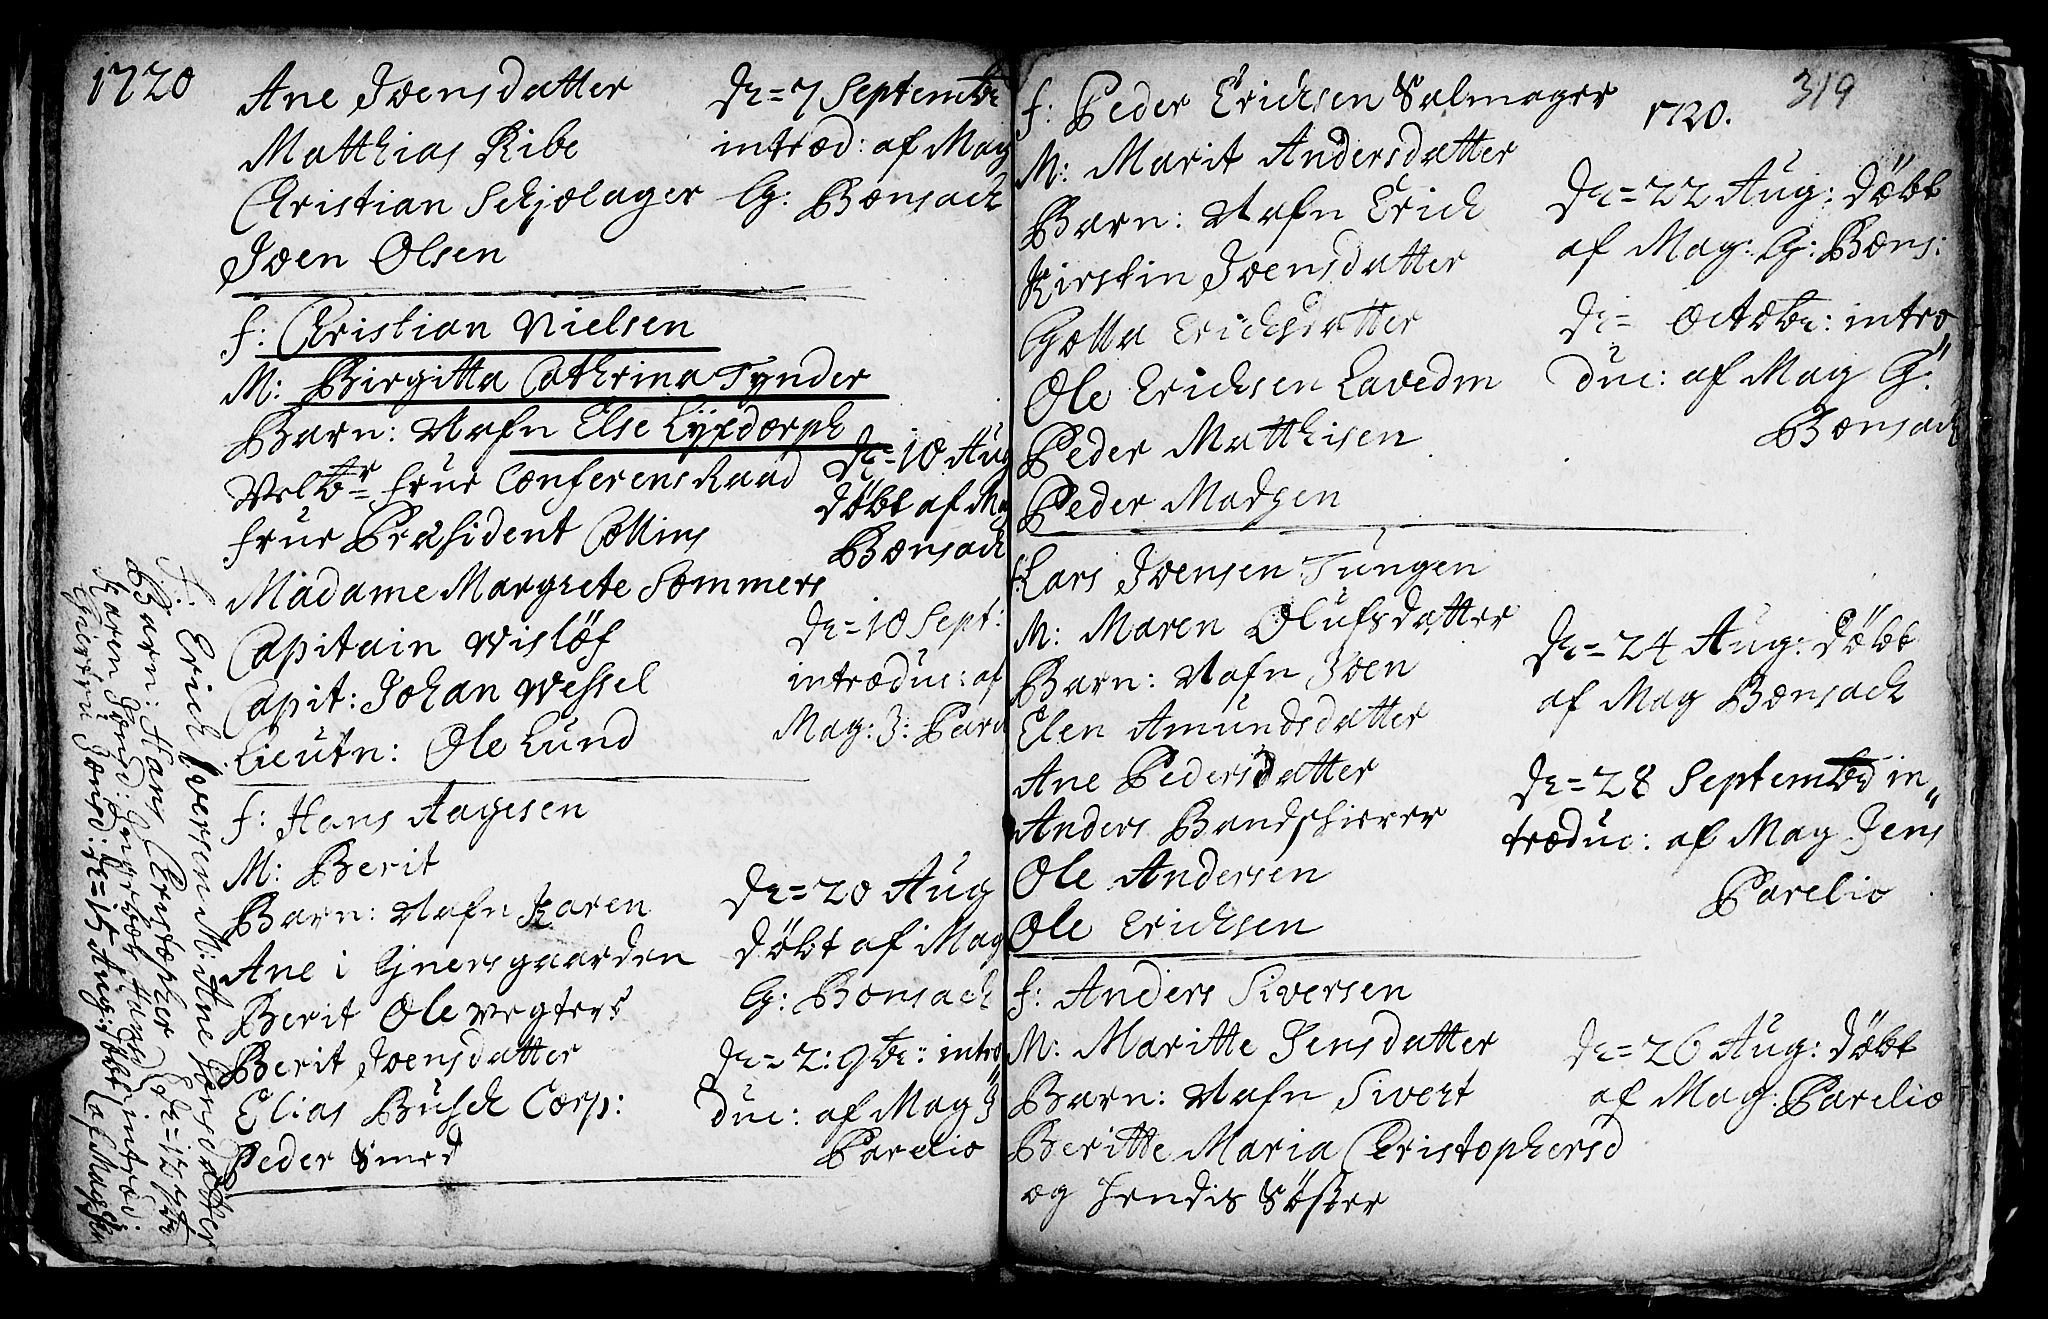 1720
Ane Joensdatter
Matthias Ribe
Christian Schjølager
Joen Olsen
d: = 7 Septembr
introd: af Mag
G: Bonsach
f: Christian Nielsen
M: Birgitta Cathrina Tynder
Barn: Nafn Else Lyxdorph
Velbr= frue Conferens Raad
frue Præsident Collins
Madame Margrete Sommers
Capitain Wislöf
Capit: Johan Wessel
Lieutn: Ole Lund
d: = 10 Aug
döbt af Mag
Bonsach
d: = 10 Sept:
introduc: af
Mag: J: Pare
f: Hans Aagesen
M: Berit
Barn: Nafn Karen
Ane i Gjnersgaarden
Berit Ole Vegters
Berit Joensdatter
Elias Busch Corp:
Peder Smed
d: = 20 Aug
döbt af Mag
G: Bonsach
d: = 2: 9br: intro
duc: af Mag J
Parelio
f: Erich Iversen M: Ane Hansdatter
Barn: Hans Christopher
Karen
319
1720.
f: Peder Erichsen Salmager
M: Marit Andersdatter
Barn: Nafn Erich
Kirstin Joensdatter
Golla Erichsdatter
Ole Erichsen Lavedm
Peder Matthisen
Peder Madsen
d: = 22 Aug: döbt
af Mag: G: Bons:
d: = Octobr: intro„
duc: af Mag G:
Bonsach
f: Lars Joensen Tungen
M: Maren Olufsdatter
Barn: Nafn Joen
Elen Amundsdatter
Ane Pedersdatter
Anders Bandskierer
Ole Andersen
Ole Erichsen
d: = 24 Aug: döbt
af Mag Bonsach
d: = 28 Septembr in„
troduc: af Mag Jens
Parelio
f: Anders Siversen
M: Maritte Jensdatter
Barn: Nafn Sivert
Beritte Maria Christophersd
og hendis Söster
d: = 26 Aug: döbt
af Mag: Parelio